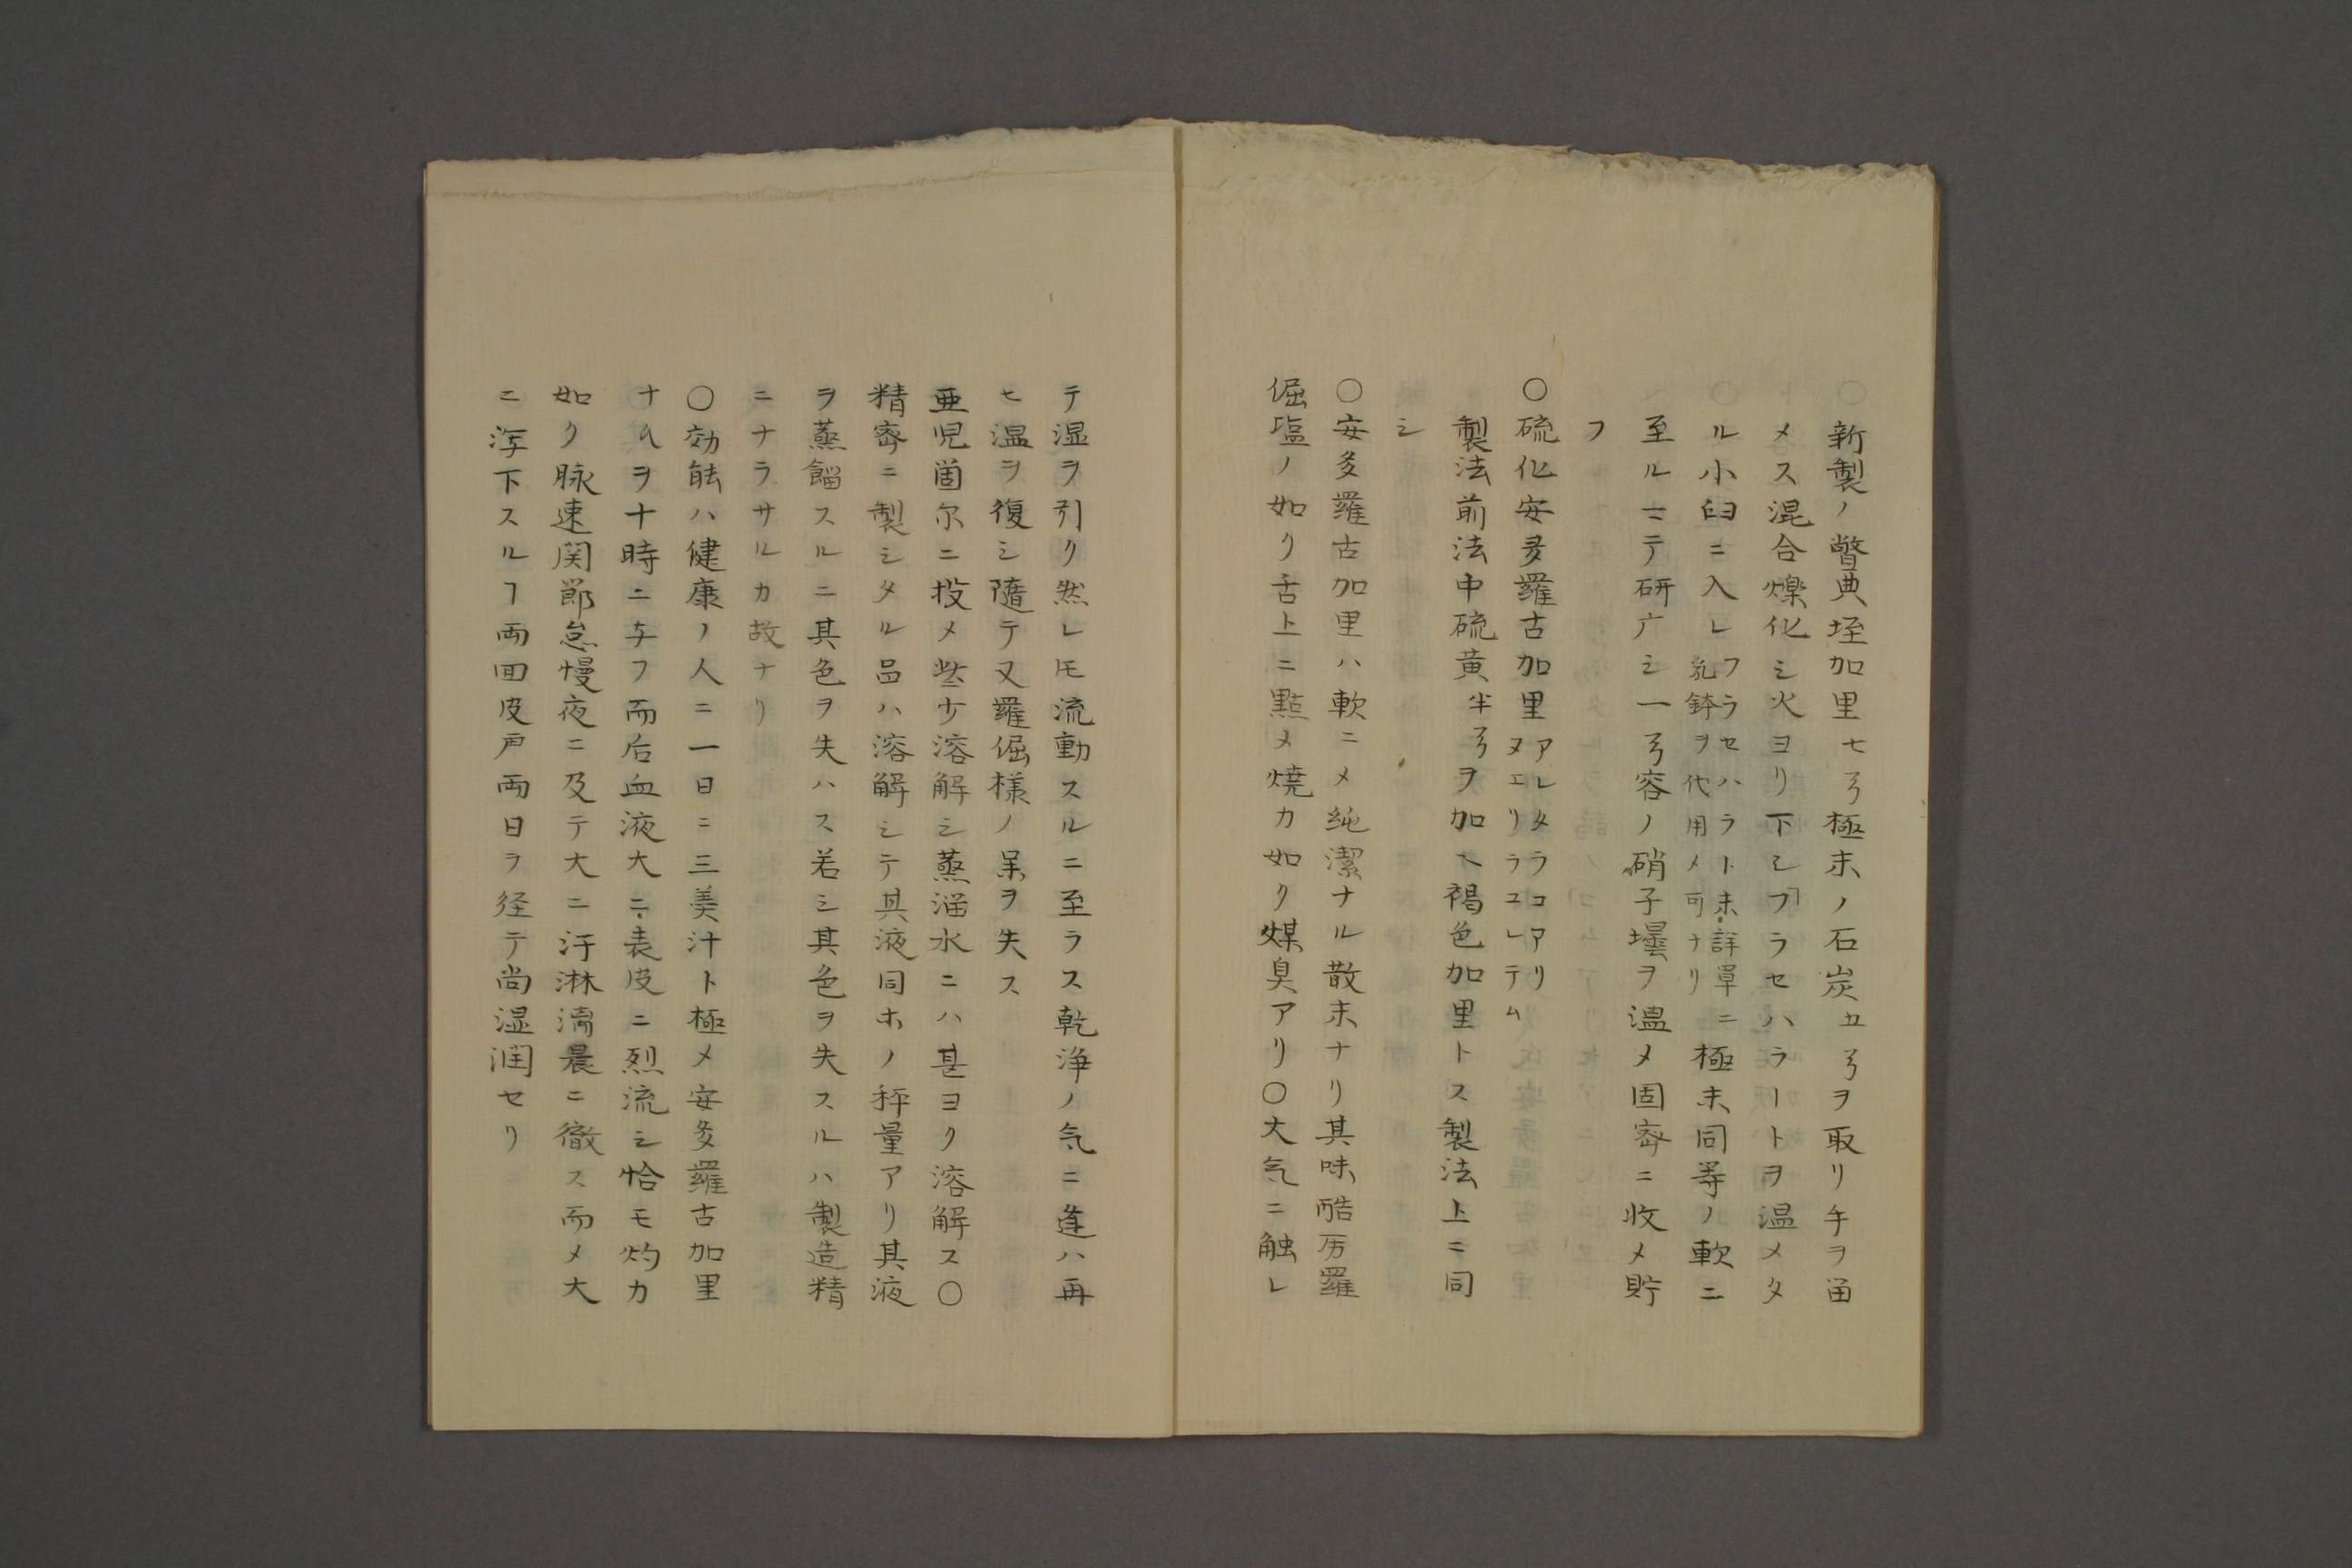 新製ノ瞥典垤加里七弓極末ノ石炭五弓ヲ取リ手ヲ畄
メス混合爍化シ火ヨリ下シフラセハラートヲ温メタ
ル小臼ニ入レフラセハラト未詳単ニ極末同等ノ軟ニ
乳鉢ヲ代用メ可ナリ
至ル迠テ研广シ一弓容ノ硝子壜ヲ温メ固密ニ收メ貯
フ
○硫化安多羅古加里アレタラコアリ
ヌエリラユレテム
製法前法中硫黄半弓ヲ加ヘ褐色加里トス製法上ニ同
シ
○安多羅古加里ハ軟ニメ純潔ナル散末ナリ其味酷厉羅
倔塩ノ如ク舌上ニ點メ焼カ如ク煤臭アリ○大気ニ触レ
テ湿ヲ引ク然レ𪜈流動スルニ至ラス乾浄ノ気ニ逢ハ再
ヒ温ヲ復シ随テ又羅倔様ノ呆ヲ失ス
亜児箇尓ニ投メ些少溶解シ蒸溜水ニハ甚ヨク溶解ス○
精密ニ製シタル品ハ溶解シテ其液同ホノ秤量アリ其液
ヲ蒸餾スルニ其色ヲ失ハス若シ其色ヲ失スルハ製造精
ニナラサルカ故ナリ
○効能ハ健康ノ人ニ一日ニ三美汁ト極メ安多羅古加里
ナ八ヲ十時ニ与フ而后血液大ニ表皮ニ烈流シ恰モ灼カ
如ク脉速関節怠慢夜ニ及テ大ニ汗淋漓晨ニ徹ス而メ大
ニ泻下スルヿ両回皮声両日ヲ経テ尚湿潤セリ